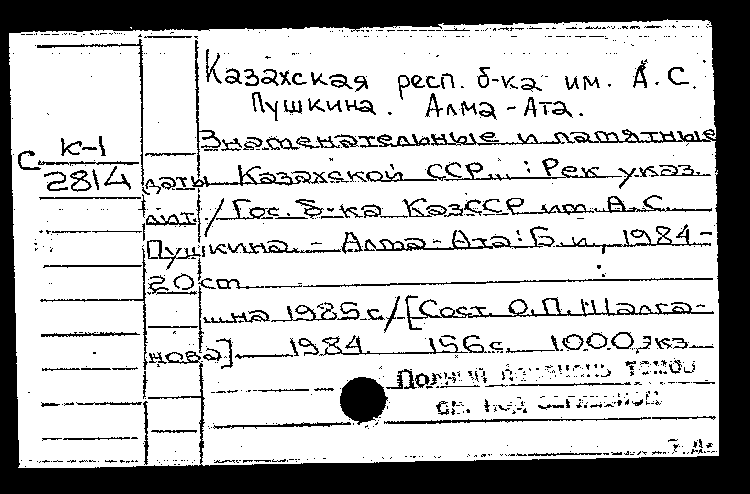 Казахская респ. б-ка им. А.С.
Пушкина. Алма-Ата.
Знаменательные и памятные
С К-1
2814
даты Казахской ССР... : Рек указ.
лит. / Гос. б-ка КазССР им. А.С.
Пушкина. - Алма-Ата: Б. и., 1984-
20 см.
...на 1985 г. / [Сост. О.П. Шалга-
нова]. 1984. 156 с. 1000 экз.
Полный перечень томов
см. под заглавием